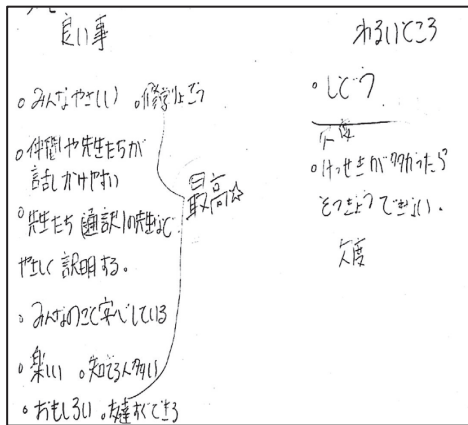 良い事
。みんなやさしい 。修学りょこう
。仲間や先生たちが
話しかけやすい
。先生たち 通訳の先生など
やさしく説明する。
。みんなのこと安心している
。楽しい 。知てる人多い
。おもしろい 。友達すぐできる
最高☆
わるいところ
。しどう
。けっせきが多かったら
そつぎょうできない。